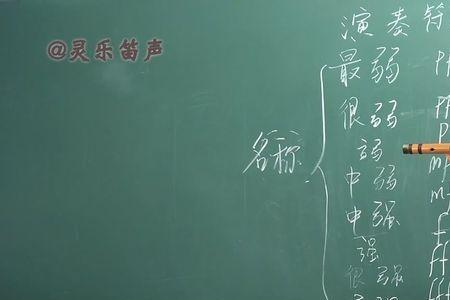 @灵乐笛声
演奏符
名称
最弱 pp
很弱 pp
弱 p
中弱 m
中强 m
强 f
很强 ff